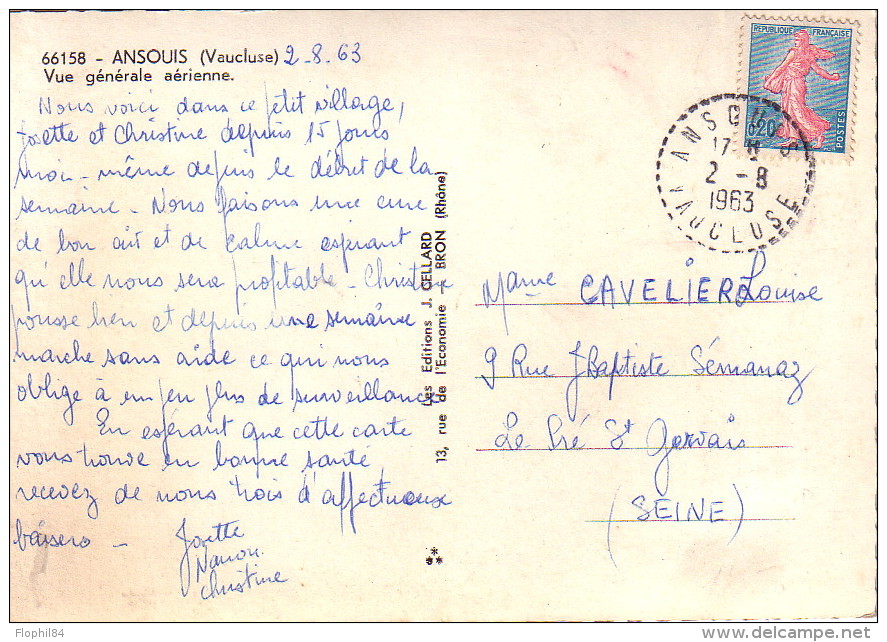 66158 - ANSOUIS (Vaucluse) 2-8.63
Vue générale aérienne.
Nous voici dans ce petit village,
Josette et Christine depuis 15 jours
moi-même depuis le début de la
semaine. Nous faisons une cure
de bon air et de calme espérant
qu'elle nous sera profitable. Christine
pousse bien et depuis une semaine
marche sans aide ce qui nous
oblige à un peu plus de surveillance
En espérant que cette carte
vous trouve en bonne santé,
recevez de nous trois d'affectueux
baisers -
Josette
Nanou
Christine
Les Editions J. CELLARD
13, rue de l'Economie BRON (Rhône)
REPUBLIQUE FRANÇAISE
0,20
POSTES
ANSOUIS
17 H
2 - 8
1963
VAUCLUSE
Mame CAVELIER Louise
9 Rue J Baptiste Sémanaz
Le Pré St Gervais
(SEINE)
Flophil84
www.delcampe.net